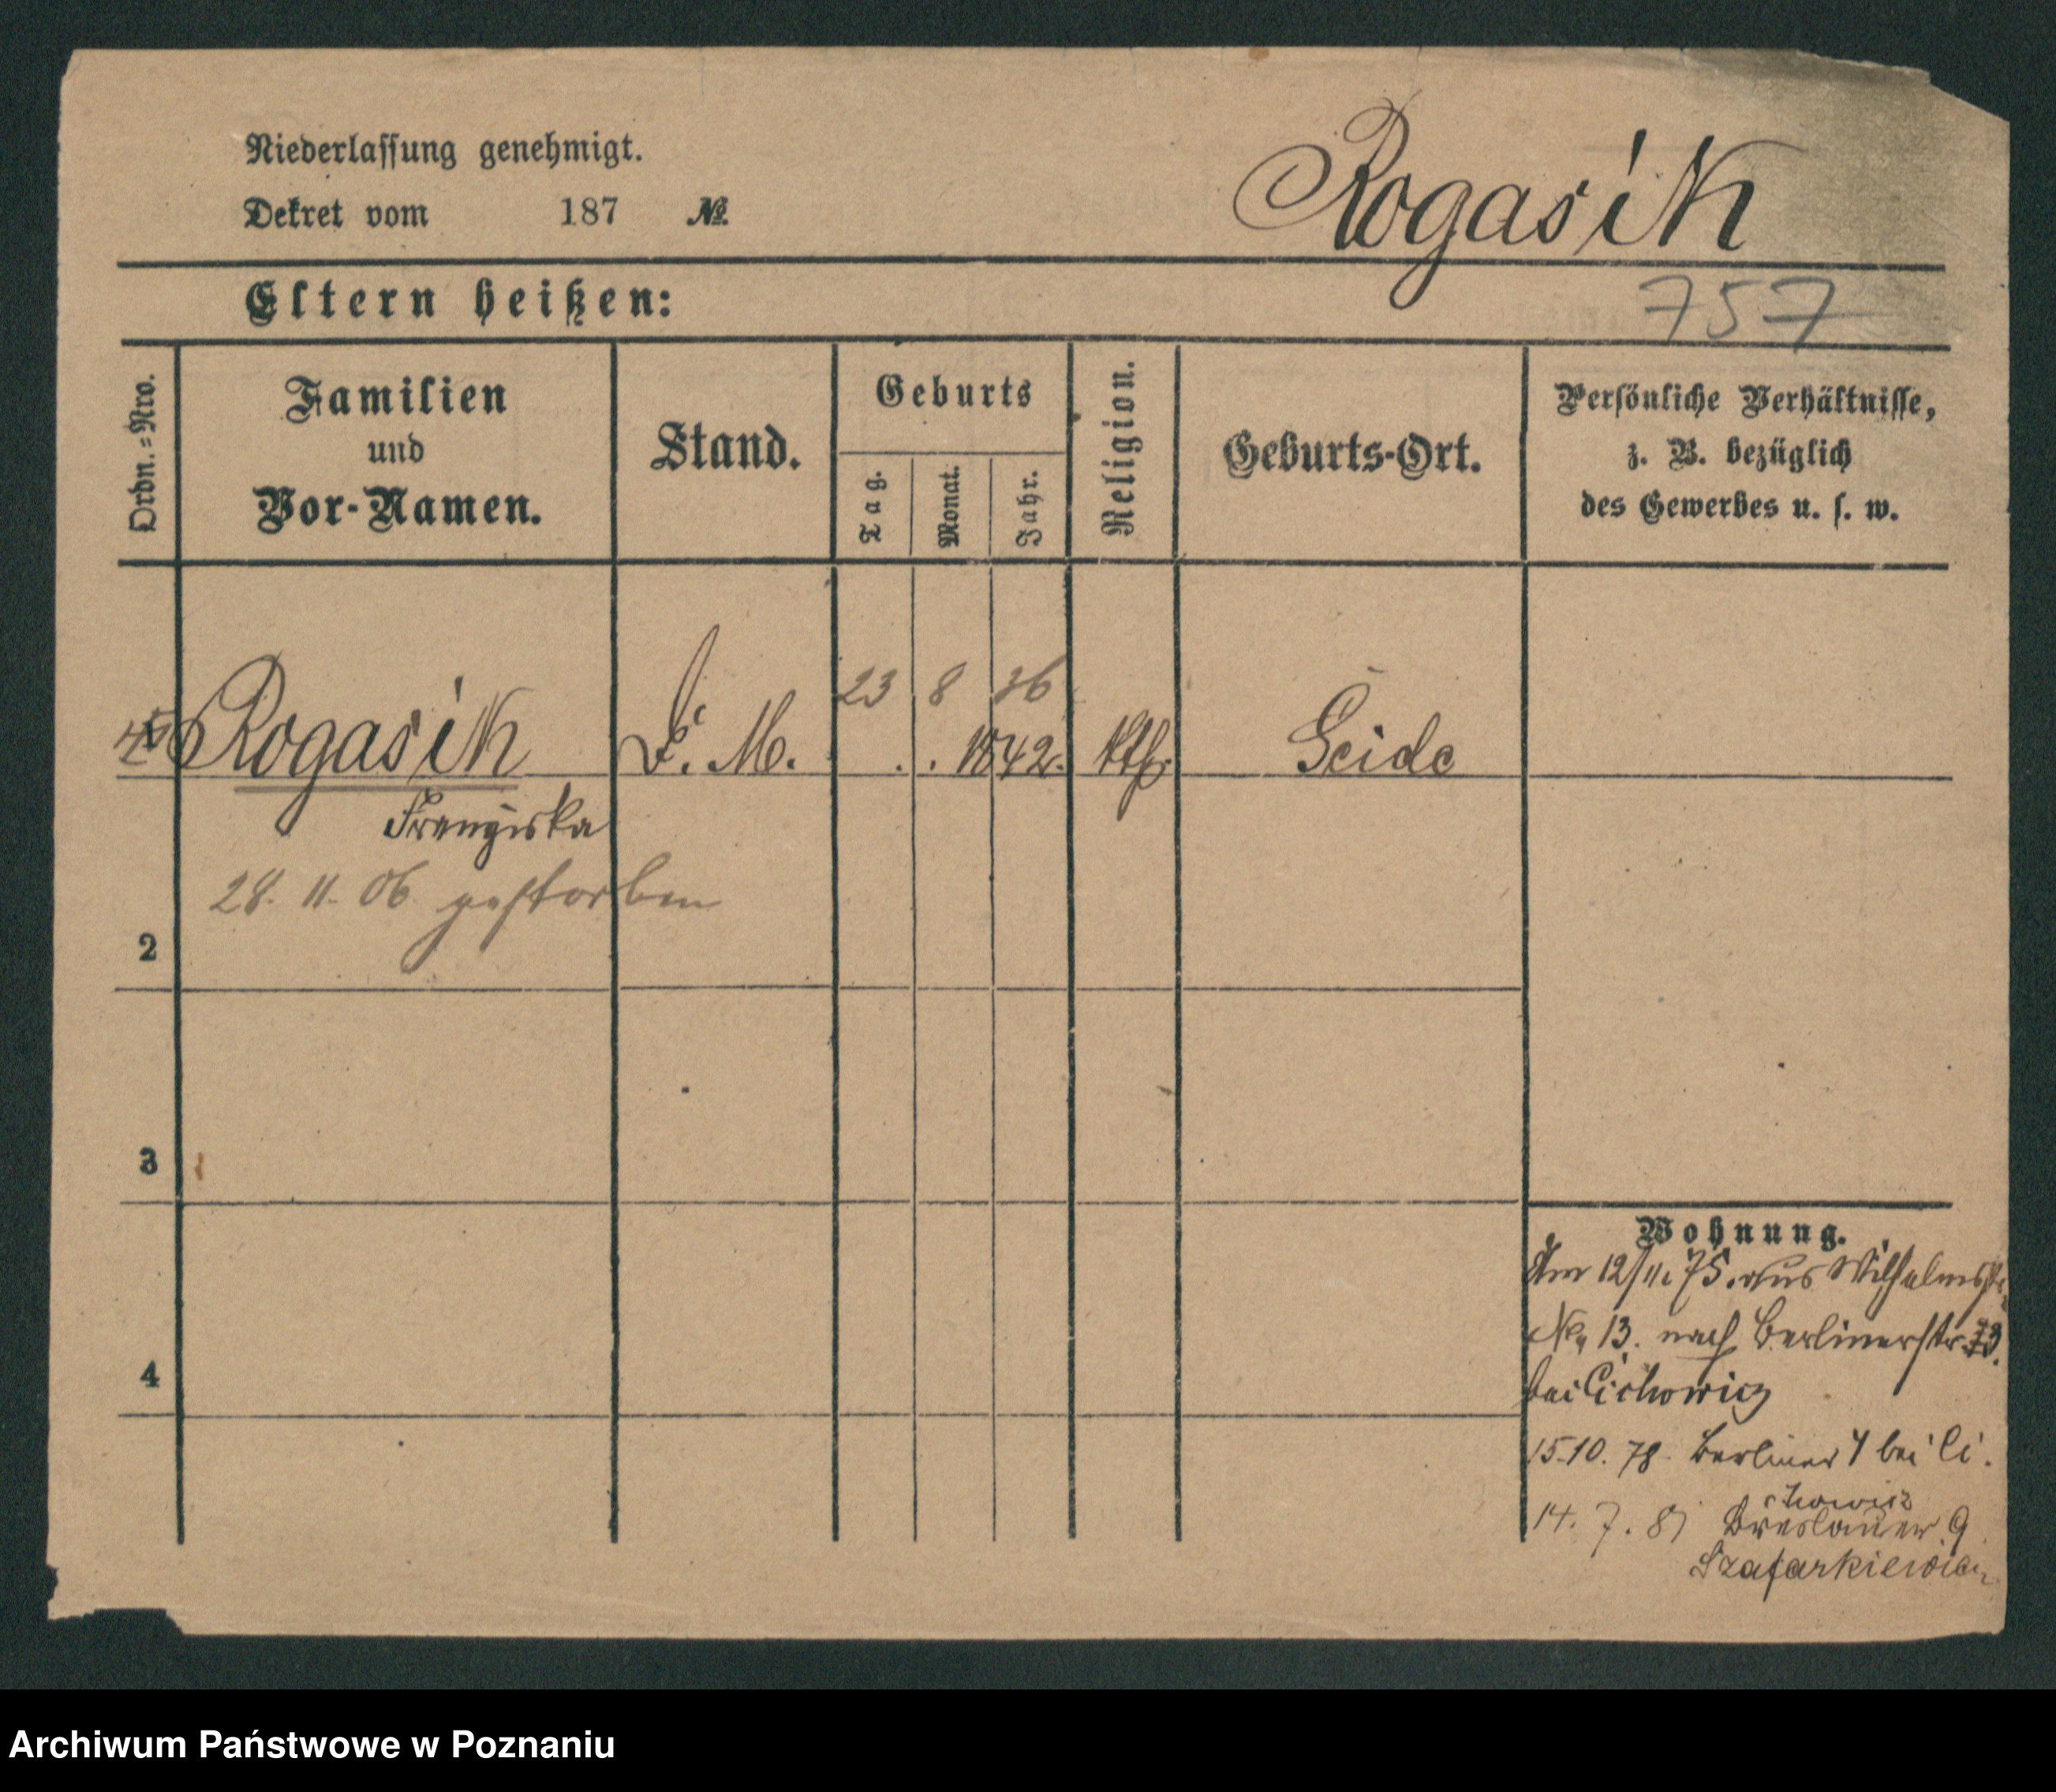 Niederlassung genehmigt.
Dekret vom 187 №
Rogasik
Eltern heißen:
757
Ordn.-Nro.
Familien
und
Vor-Namen.
Stand.
Geburts
Tag.
Monat.
Jahr.
Religion.
Geburts-Ort.
Persönliche Verhältnisse,
z. B. bezüglich
des Gewerbes u. s. w.
23 8 36
Rogasik D. M. . . 1842. kth. Geide
Franziska
28. 11. 06 gestorben
2
3
Wohnung.
Am 12/11. 75. aus Wilhelmsstr.
No. 13. nach Berlinerstr.
4
bei Cichowicz
15.10. 78. Berliner 4 bei Ci.
chowicz
14. 7. 81 Breslauer 9
Szafarkiewicz
Archiwum Państwowe w Poznaniu